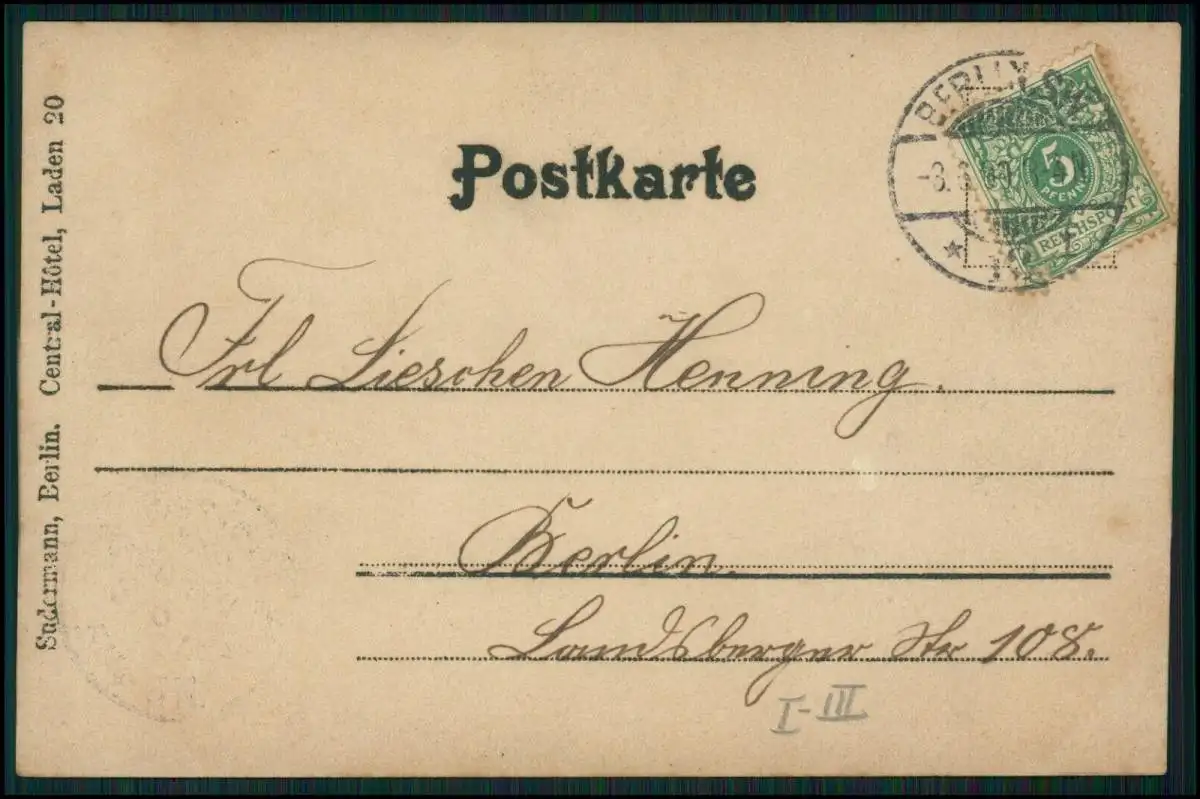 Postkarte
BERLIN
5
PFENNIG
REICHSPOST
Frl Lieschen Henning.
Berlin.
Landsberger Str 108.
I-III
Sudermann, Berlin. Central-Hôtel, Laden 20